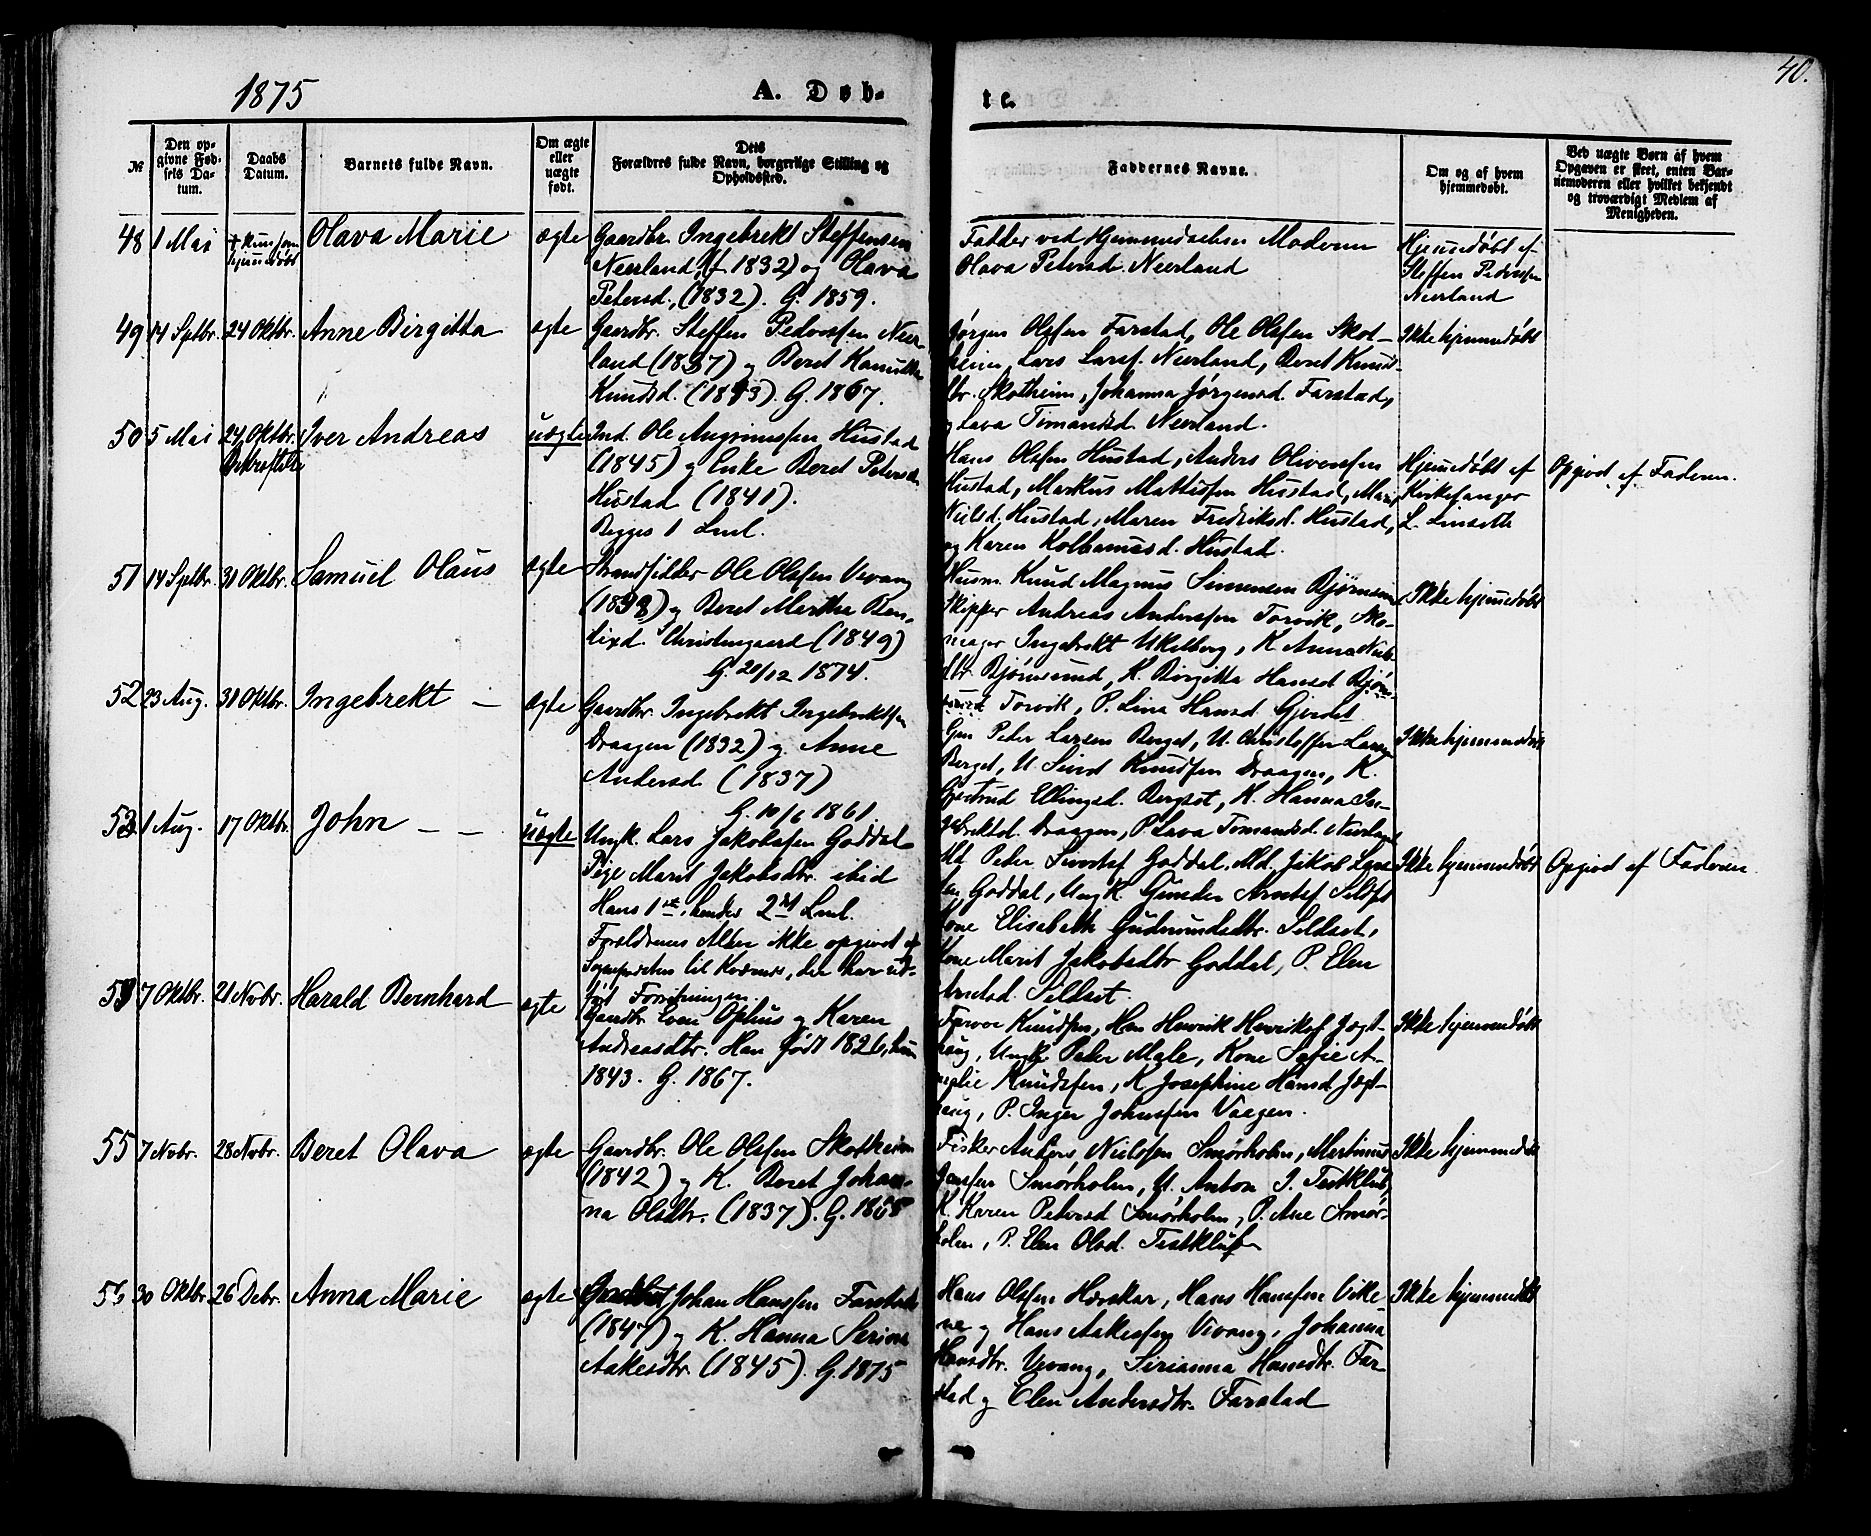 1875
A. Døb-
te.
40.
№
Den op-
givne Fød-
sels Da-
tum.
Daabs
Datum.
Barnets fulde Navn.
Om ægte
eller
uægte
født.
Dets
Forældres fulde Navn, borgerlige Stilling og
Opholdssted.
Faddernes Navne.
Om og af hvem
hjemmedøbt.
Ved uægte Børn af hvem
Opgaven er skeet, enten Bar-
nemoderen eller hvilket bekjendt
og troværdigt Medlem af
Menigheden.
48 1 Mai
+ kun som
hjemmedøbt
Olava Marie
ægte
Gaardbr. Ingebrekt Steffensen
Neerland, (f 1832) og Olava
Petersd., (1832). G. 1859.
Fadder ved Hjemmedaaben Moderen
Olava Petersd. Neerland
Hjemmedøbt af
Steffen Pederssen
Neerland
49 14 Sptbr. 24 Oktbr. Anne Birgitta
ægte
Gaardbr. Steffen Pederssen Neer-
land (1837) og Beret
Knudsd. (1843). G. 1867.
Jørgen Olssen Farstad, Ole Olssen Skot-
heim, Lars Larss. Neerland, Beret Knuds-
dtr. Skotheim, Johanna Jørgensd. Farstad,
og Lava Tomasd. Neerland.
Ikke hjemmedøbt
50 5 Mai 24 Oktbr.
Bekræftet
Iver Andreas
uægte
Ind. Ole Hustad
(1845) og Enke Beret Petersd.
Hustad (1841).
Begges 1 Lml.
Hans Olssen Hustad, Anders Oliverssen
Hustad, Markus Mattissen Hustad, Maren
Nielsd. Hustad, Maren Fredriksd. Hustad,
og Karen Kolbanusd. Hustad.
Hjemmedøbt af
Kirkesanger
L. Linseth
Opgivet af Faderen.
51 14 Sptbr. 31 Oktbr. Samuel Olaus
ægte
Strandsidder Ole Olssen Vevang
(1838) og Beret Martha Ben-
dixd. Christengaard (1849)
G. 20/12 1874.
Husm. Knud Magnus Simensen Bjørnsund,
Skipper Andreas Anderssen Torvik, Sko-
mager Ingebrekt Ukelberg, K. Anna Niels-
dtr. Bjørnsund, K. Birgitta Hansd. Bjørn-
sund Torvik, P. Lina Hansd. Gjerdet
Ikke hjemmedøbt
52 23 Aug. 31 Oktbr. Ingebrekt —
ægte
Gaardbr. Ingebrekt Ingebrektssen
Draagen (1832) og Anne
Andersd. (1837)
G. 10/6 1861.
Peder Larsen Berget, U. Christoffer Larsen
Berget, U. Sivert Knudssen Draagen, K.
Gjertrud Ellingsd. Bergset, K. Hanna In-
gebrektsd. Draagen, P. Lava Tomasd. Neerland
Ikke hjemmedøbt
53 1 Aug. 17 Oktbr. John — —
uægte
Ungk. Lars Jakobssen Goddal
Pige Marit Jakobsdtr. ibid
Hans 1ste, hendes 2det Lml.
Forældrenes Alder ikke opgivet af
Sognepræsten til Kvernes, der har ud-
ført Forretningen.
Peder Sivertss. Goddal, Md. Jakob Lars-
sen, Goddal, Ungk. Gunder Arntss. Sildset
Kone Elisabeth Gudmundsdtr. Sildset,
Kone Marit Jakobsdtr Goddal, P. Elen
Arntsd. Sildset.
Ikke hjemmedøbt
Opgivet af Faderen.
54 7 Oktbr. 21 Novbr. Harald Bernhard
ægte
Gaardbr. Even Ophus og Karen
Andreasdtr. Han født 1826, hun
1843. G. 1867.
Knudssen, Hen Henrik Henrikss. Jægt-
haug, Ungk. Peder Male, Kone Sofie A-
malie Knudssen, K. Josephine Hansd. Jægt-
haug, P. Inger Johnssen Vaagen.
Ikke hjemmedøbt
55 7 Novbr. 28 Novbr. Beret Olava
ægte
Gaardbr. Ole Olssen Skotheim
(1842) og K. Beret Johan-
na Olsdtr. (1837). G. 1868
Fisker Anders Nielssen Smørholm, Martinus
Jenssen Smørholm, U. Anton J. Teitkluf,
K. Karen Petersd. Smørholm, P. Ane Smør-
holm, P. Elen Olsd. Teitkluf
Ikke hjemmedøbt
56 30 Oktbr. 26 Debr. Anna Marie
ægte
Johan Hanssen Farstad
(1847) og K. Hanna Serine
Aakesdtr. (1845). G. 1875
Hans Olssen Hærskar, Hans Hanssen Vike-
ne og Hans Aakessen Vevang, Johanna
Hansdtr. Vevang, Sirianna Hansdtr. Far-
stad og Elen Andersdtr. Farstad
Ikke hjemmedøbt